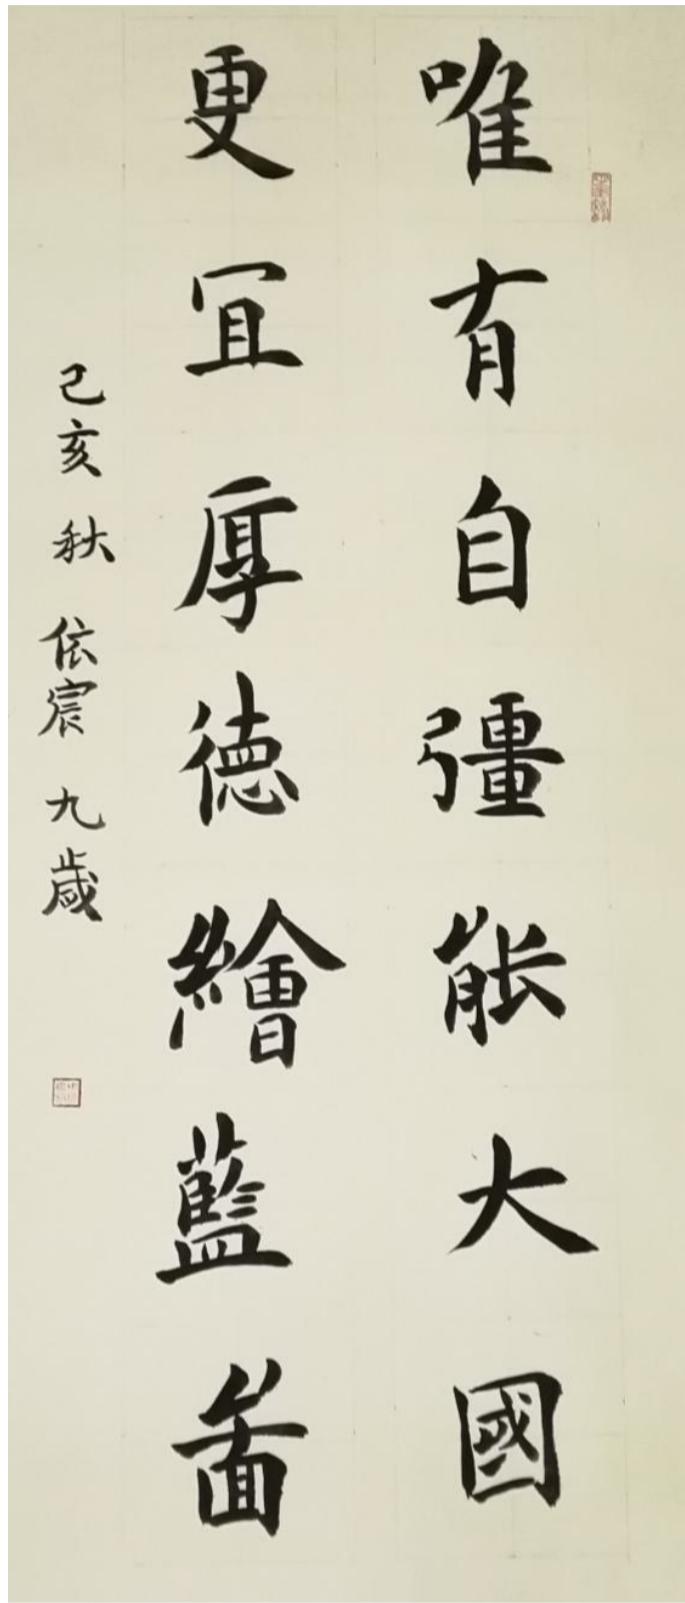 唯有自彊能大國
更宜厚德繪藍啚
己亥秋 依宸九歲